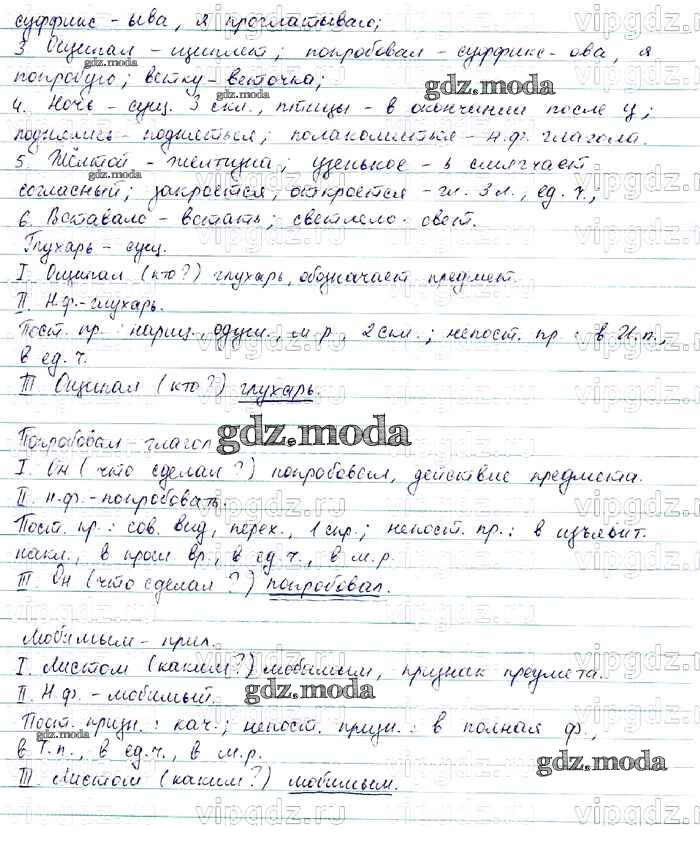 суффикс - ыва, я проглатываю;
3. Ощипал - щиплет; попробовал - суффикс - ова, я
попробую; ветку - веточка;
4. Ночь - сущ. 3 скл., птицы - в окончании после ц;
поднялись - подняться; полакомиться - н.ф. глагола.
5. Жёлтой - желтизна; узенькое - ь смягчает
согласный; закроется, откроется - гл. 3 л., ед. ч.,
6. Вставало - встать; светлело - свет.
Глухарь - сущ.
I. Ощипал (кто?) глухарь, обозначает предмет.
II. Н.ф. - глухарь.
Пост. пр.: нариц., одуш., м.р., 2 скл.; непост. пр.: в И.п.,
в ед. ч.
III Ощипал (кто?) глухарь.
Попробовал - глагол
I. Он (что сделал?) попробовал, действие предмета.
II. н.ф. - попробовать.
Пост. пр.: сов. вид, перех., 1 спр.; непост. пр.: в изъявит.
накл., в прош вр., в ед. ч., в м.р.
III. Он (что сделал?) попробовал.
Любимым - прил.
I. Листом (каким?) любимым, признак предмета.
II. Н.ф. - любимый.
Пост. призн.: кач.; непост. призн.: в полная ф.,
в Т.п., в ед. ч., в м.р.
III. Листом (каким?) любимым.
gdz.moda
vipgdz.ru